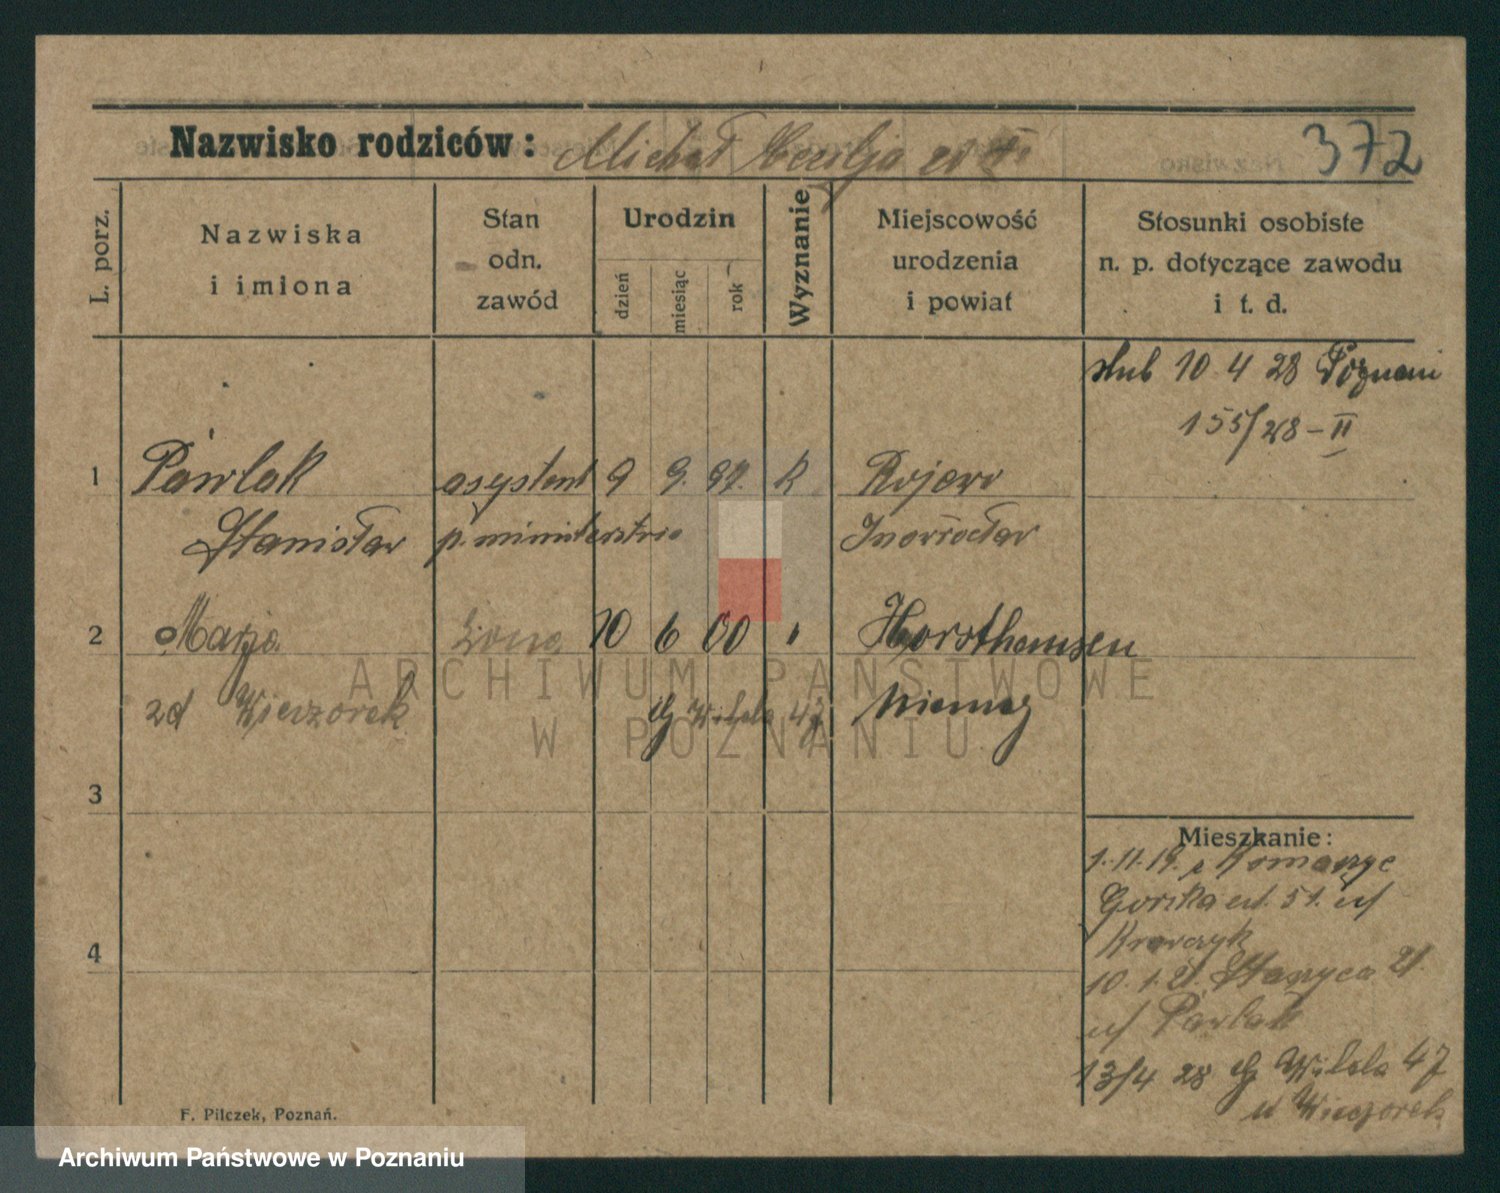 Nazwisko rodziców: Michał
372
L. porz.
Nazwiska
i imiona
Stan
odn.
zawód
Urodzin
dzień
miesiąc
rok
Wyznanie
Miejscowość
urodzenia
i powiat
Stosunki osobiste
n. p. dotyczące zawodu
i t. d.
ślub 10 4 28 Poznań
155/28-II
1 Pawlak asystent 9 9. 97. K Rojewo
Stanisław p. ministerstwie Inowrocław
2 Marja żona 10 6 00 " Horsthausen
zd Wieczorek Wilda 47 Niemcy
ARCHIWUM PAŃSTWOWE
W POZNANIU
3
4
Mieszkanie:
1.11.19. z Komarzyc
Gorska 51. u/
Krawczyk
10. 1. 21. 21.
u/ Pawlak
13/4 28 G Wilda 47
u Wieczorek
F. Pilczek, Poznań.
Archiwum Państwowe w Poznaniu